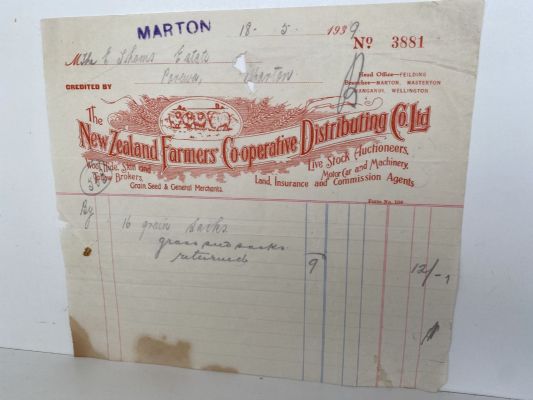 MARTON 18 - 5 1939
Nº 3881
Estate
Porewa, Marton
CREDITED BY
Head Office—FEILDING
Branches—MARTON, MASTERTON
WANGANUI, WELLINGTON
The
New Zealand Farmers' Co-operative Distributing Co. Ltd
Wool, Hide, Skin and
Tallow Brokers,
Grain Seed & General Merchants.
Live Stock Auctioneers,
Motor Car and Machinery,
Land, Insurance and Commission Agents
Form No. 104
By
16 grain sacks
grass seed sacks
returned 9 12/-